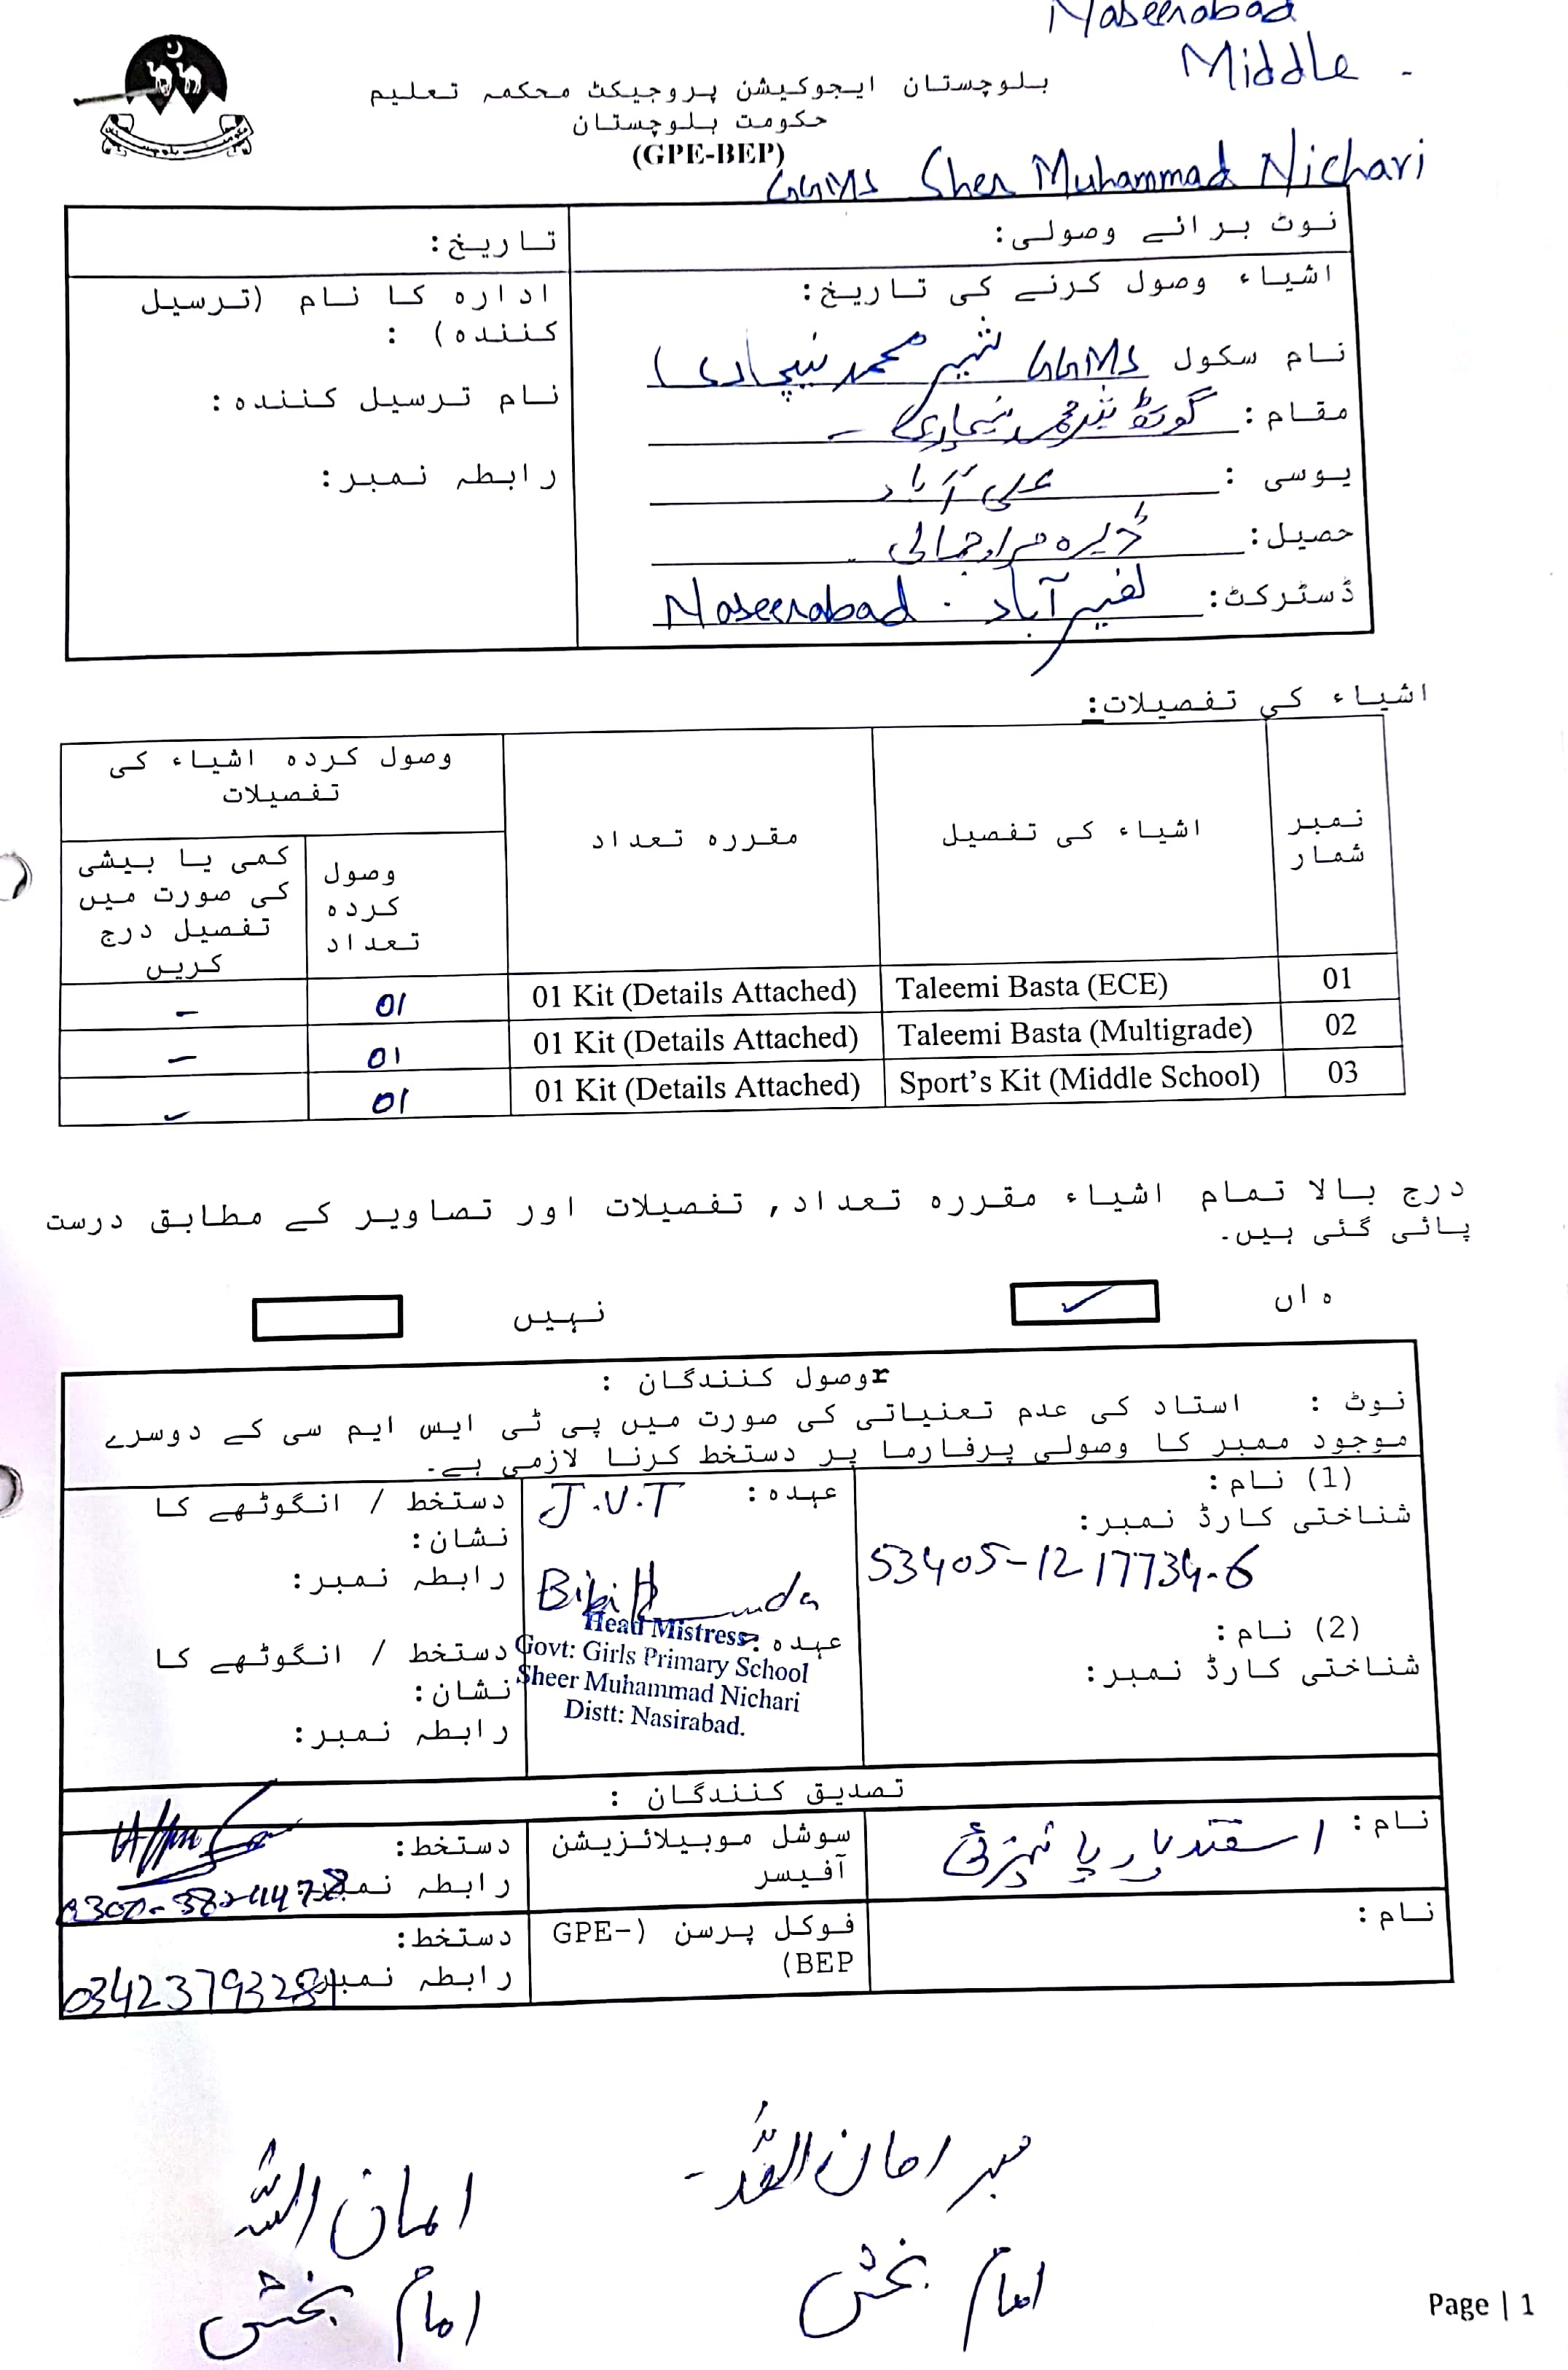 Naseerabad
Middle -
بلوچستان ایجوکیشن پروجیکٹ محکمہ تعلیم
حکومت بلوچستان
(GPE-BEP)
GGMS Sher Muhammad Nichari
نوٹ برائے وصولی:
تاریخ:
اشیاء وصول کرنے کی تاریخ:
نام سکول GGMS شیر محمد نیچاری
مقام: گوٹھ شیر محمد نیچاری -
یوسی : علی آباد
حصیل: ڈیرہ مراد جمالی
ڈسٹرکٹ: نصیر آباد . Naseerabad
ادارہ کا نام (ترسیل
کنندہ) :
نام ترسیل کنندہ:
رابطہ نمبر:
اشیاء کی تفصیلات:
نمبر شمار
اشیاء کی تفصیل
مقررہ تعداد
وصول کردہ اشیاء کی
تفصیلات
وصول
کردہ
تعداد
کمی یا بیشی
کی صورت میں
تفصیل درج
کریں
01 Taleemi Basta (ECE) 01 Kit (Details Attached) 01 -
02 Taleemi Basta (Multigrade) 01 Kit (Details Attached) 01 -
03 Sport’s Kit (Middle School) 01 Kit (Details Attached) 01 -
درج بالا تمام اشیاء مقررہ تعداد, تفصیلات اور تصاویر کے مطابق درست
پائی گئی ہیں۔
ہاں ✓ نہیں
rوصول کنندگان :
نوٹ : استاد کی عدم تعنیاتی کی صورت میں پی ٹی ایس ایم سی کے دوسرے
موجود ممبر کا وصولی پرفارما پر دستخط کرنا لازمی ہے۔
(1) نام:
شناختی کارڈ نمبر:
53405-1217734-6
(2) نام:
شناختی کارڈ نمبر:
عہدہ: J.V.T
Bibi
عہدہ:
Head Mistress
Govt: Girls Primary School
Sheer Muhammad Nichari
Distt: Nasirabad.
دستخط / انگوٹھے کا
نشان:
رابطہ نمبر:
دستخط / انگوٹھے کا
نشان:
رابطہ نمبر:
تصدیق کنندگان :
نام: اسفندیار پانیزئی
سوشل موبیلائزیشن
آفیسر
دستخط:
رابطہ نمبر:
نام:
فوکل پرسن (GPE-
BEP)
دستخط:
رابطہ نمبر:
امان اللہ
امان اللہ
امام بخش
امام بخش
Page | 1